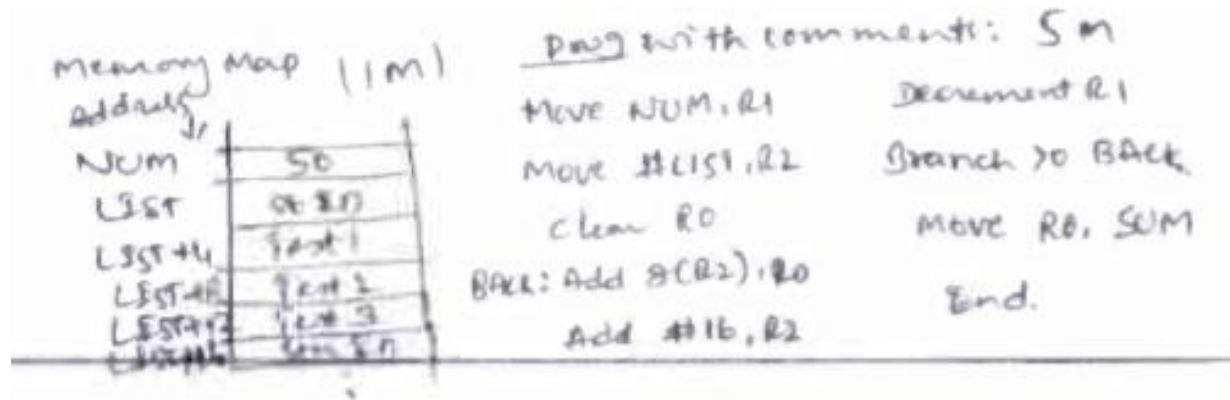 Memory Map (1M)
Address
NUM 50
LIST
LIST+4 Test 1
LIST+8 Test 2
LIST+12 Test 3
Prog with comments: 5m
Move NUM, R1
Move #LIST, R2
Clear R0
BACK: Add 8(R2), R0
Add #16, R2
Decrement R1
Branch >0 BACK
Move R0, SUM
End.